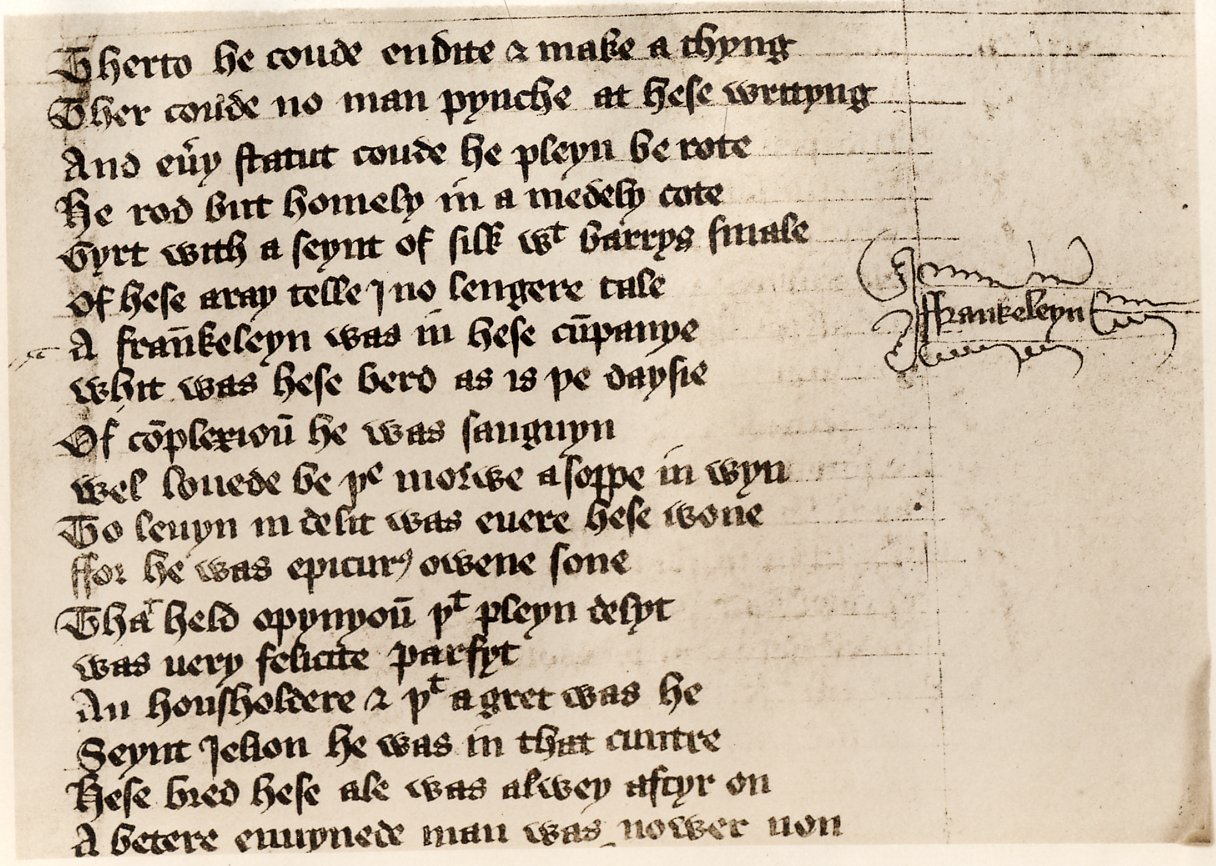 Therto he coude endite & make a thyng
Ther coude no man pynche at hese writyng
And eu̾y statut coude he pleyn be rote
He rod but homely in a medely cote
Gyrt with a seynt of silk wᵗ barrys smale
Of hese aray telle I no lengere tale
A frau̅keleyn was in hese cu̅panye
Whit was hese berd as is þe daysie
Of co̅plexiou̅ he was sanguyn
Wel louede be þᵉ morwe a soppe in wyn
To leuyn in delit was euere hese wone
ffor he was epicurꝰ owene sone
Thaᵗ held opynyou̅ þᵗ pleyn delyt
Was uery felicite parfyt
An housholdere & þᵗ a gret was he
Seynt Jelion he was in that cuntre
Hese bred hese ale was alwey aftyr on
A betere enuynede man was nower non
ffrankeleyn